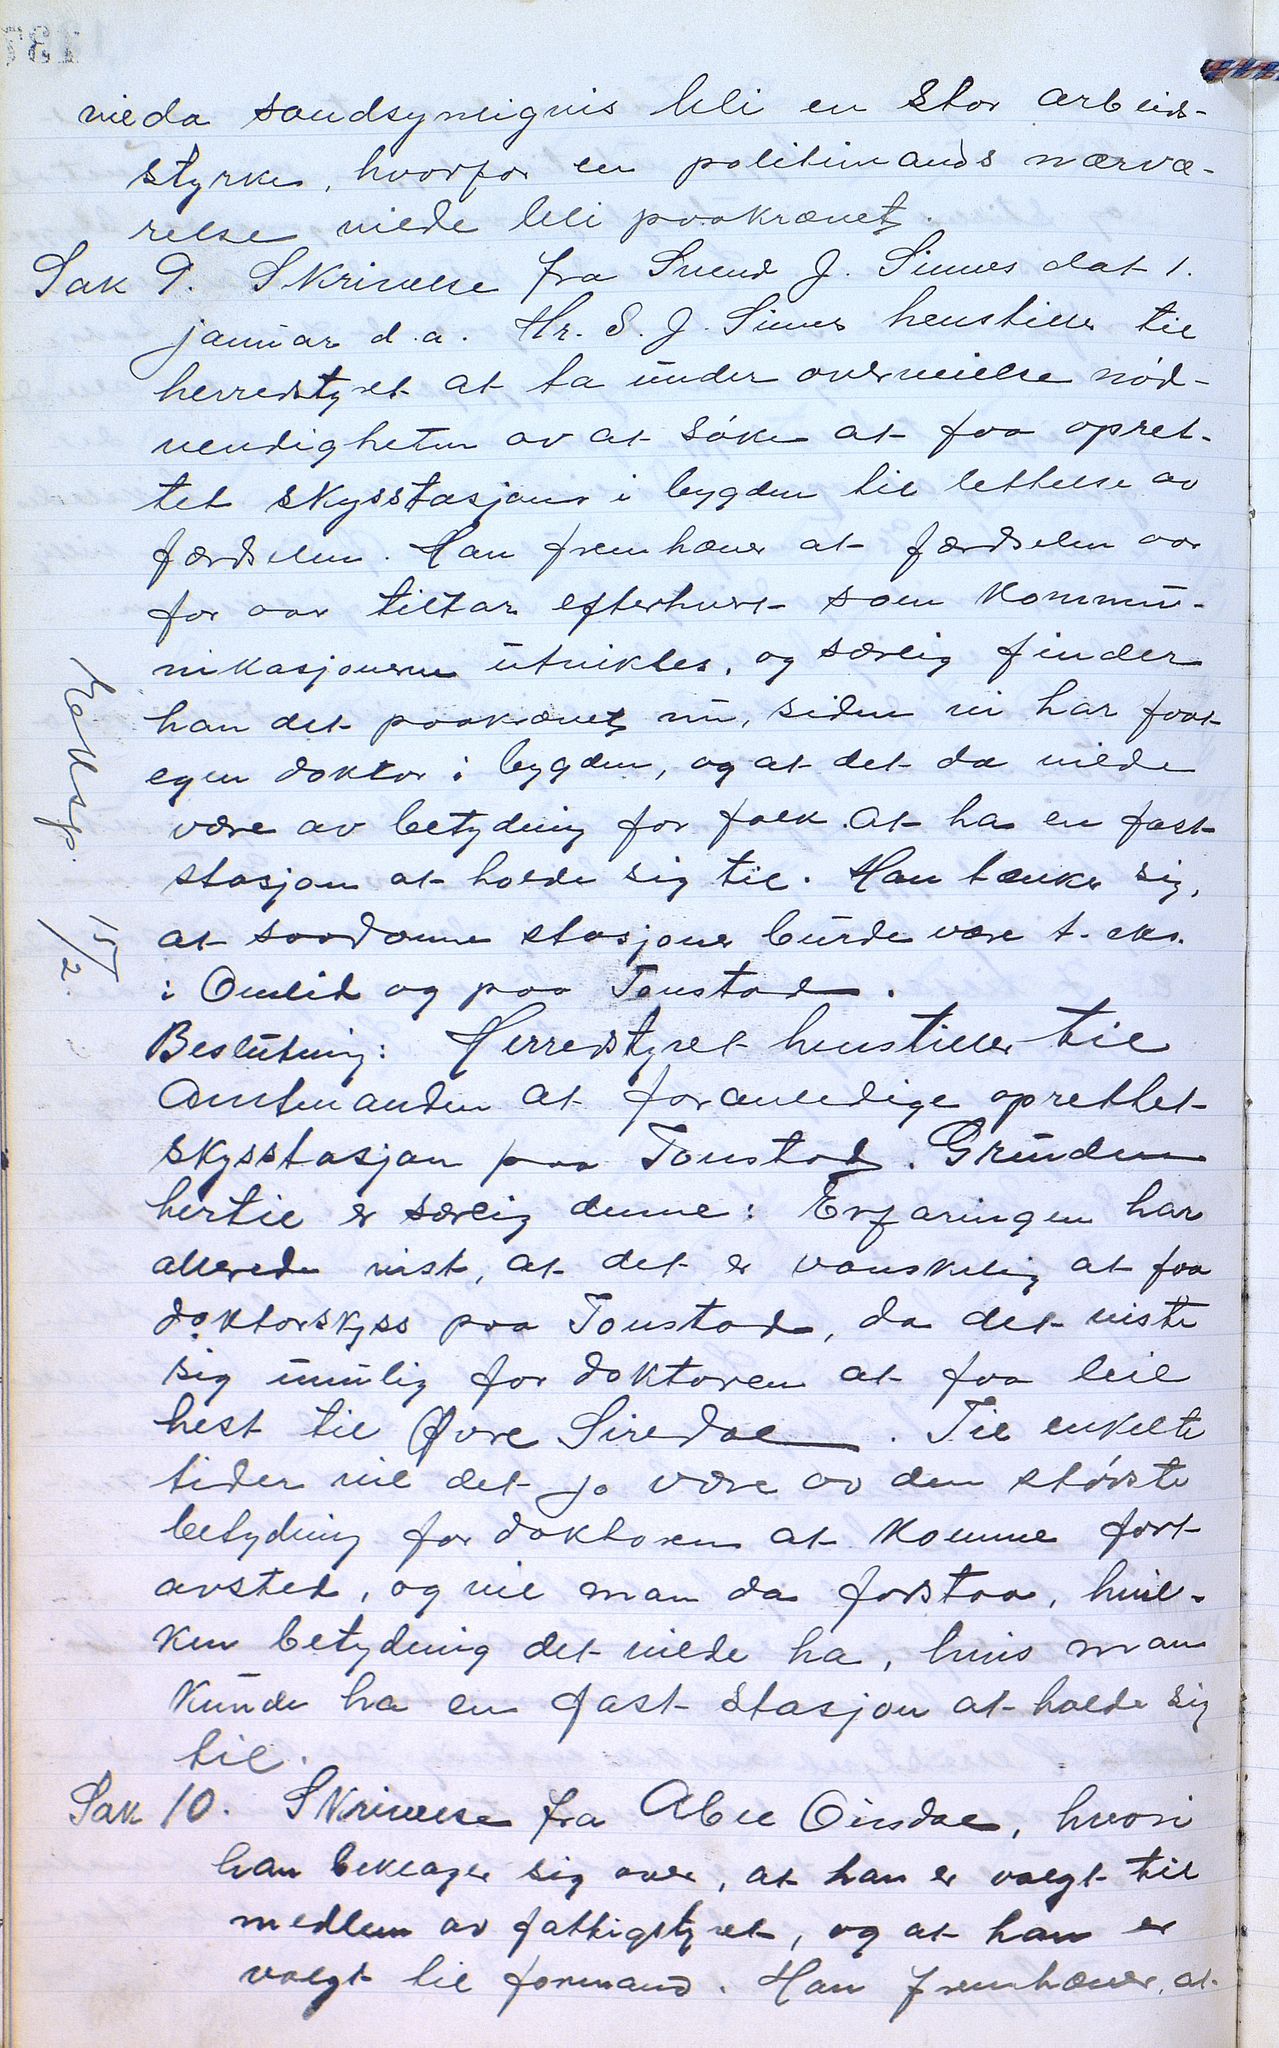 vilda sandsynligvis bli en stor arbeids-
styrke, hvorfor en politimands nærvæ-
relse vilde bli paakrævet.
Sak 9. Skrivelse fra Svend J. Sinnes dat 1.
januar d.a. Hr. S. J. Sinnes henstiller til
herredstyret at ta under overveielse nød-
vendigheten av at søke at faa opret-
tet skysstasjons i bygden til lettelse av
færdselen. Han fremhæver at færdselen aar
for aar tiltar efterhvert som kommu-
nikasjonerne utvikles, og særlig finder
han det paakrævet nu, siden vi har faat
egen doktor i bygden, og at det da vilde
være av betydning for folk at ha en fast
stasjon at holde sig til. Han tænker sig,
at saadanne stasjoner burde være t. eks.
i Omlid og paa Tonstad.
Beslutning: Herredstyret henstiller til
Amtmanden at foranledige oprettet
skysstasjon paa Tonstad. Grunden
hertil er særlig denne: Erfaringen har
allerede vist, at det er vanskelig at faa
doktorskyss paa Tonstad, da det viste
sig umulig for doktoren at faa leie
hest til Øvre Siredal. Til enkelte
tider vil det jo være av den største
betydning for doktoren at komme fort
avsted, og vil man da forstaa, hvil-
ken betydning det vilde ha, hvis man
kunde ha en fast stasjon at holde sig
til.
Sak 10. Skrivelse fra Abel Ousdal, hvori
han beklager sig over, at han er valgt til
medlem av fattigstyret, og at han er
valgt til formand. Han fremhæver, at
15/2